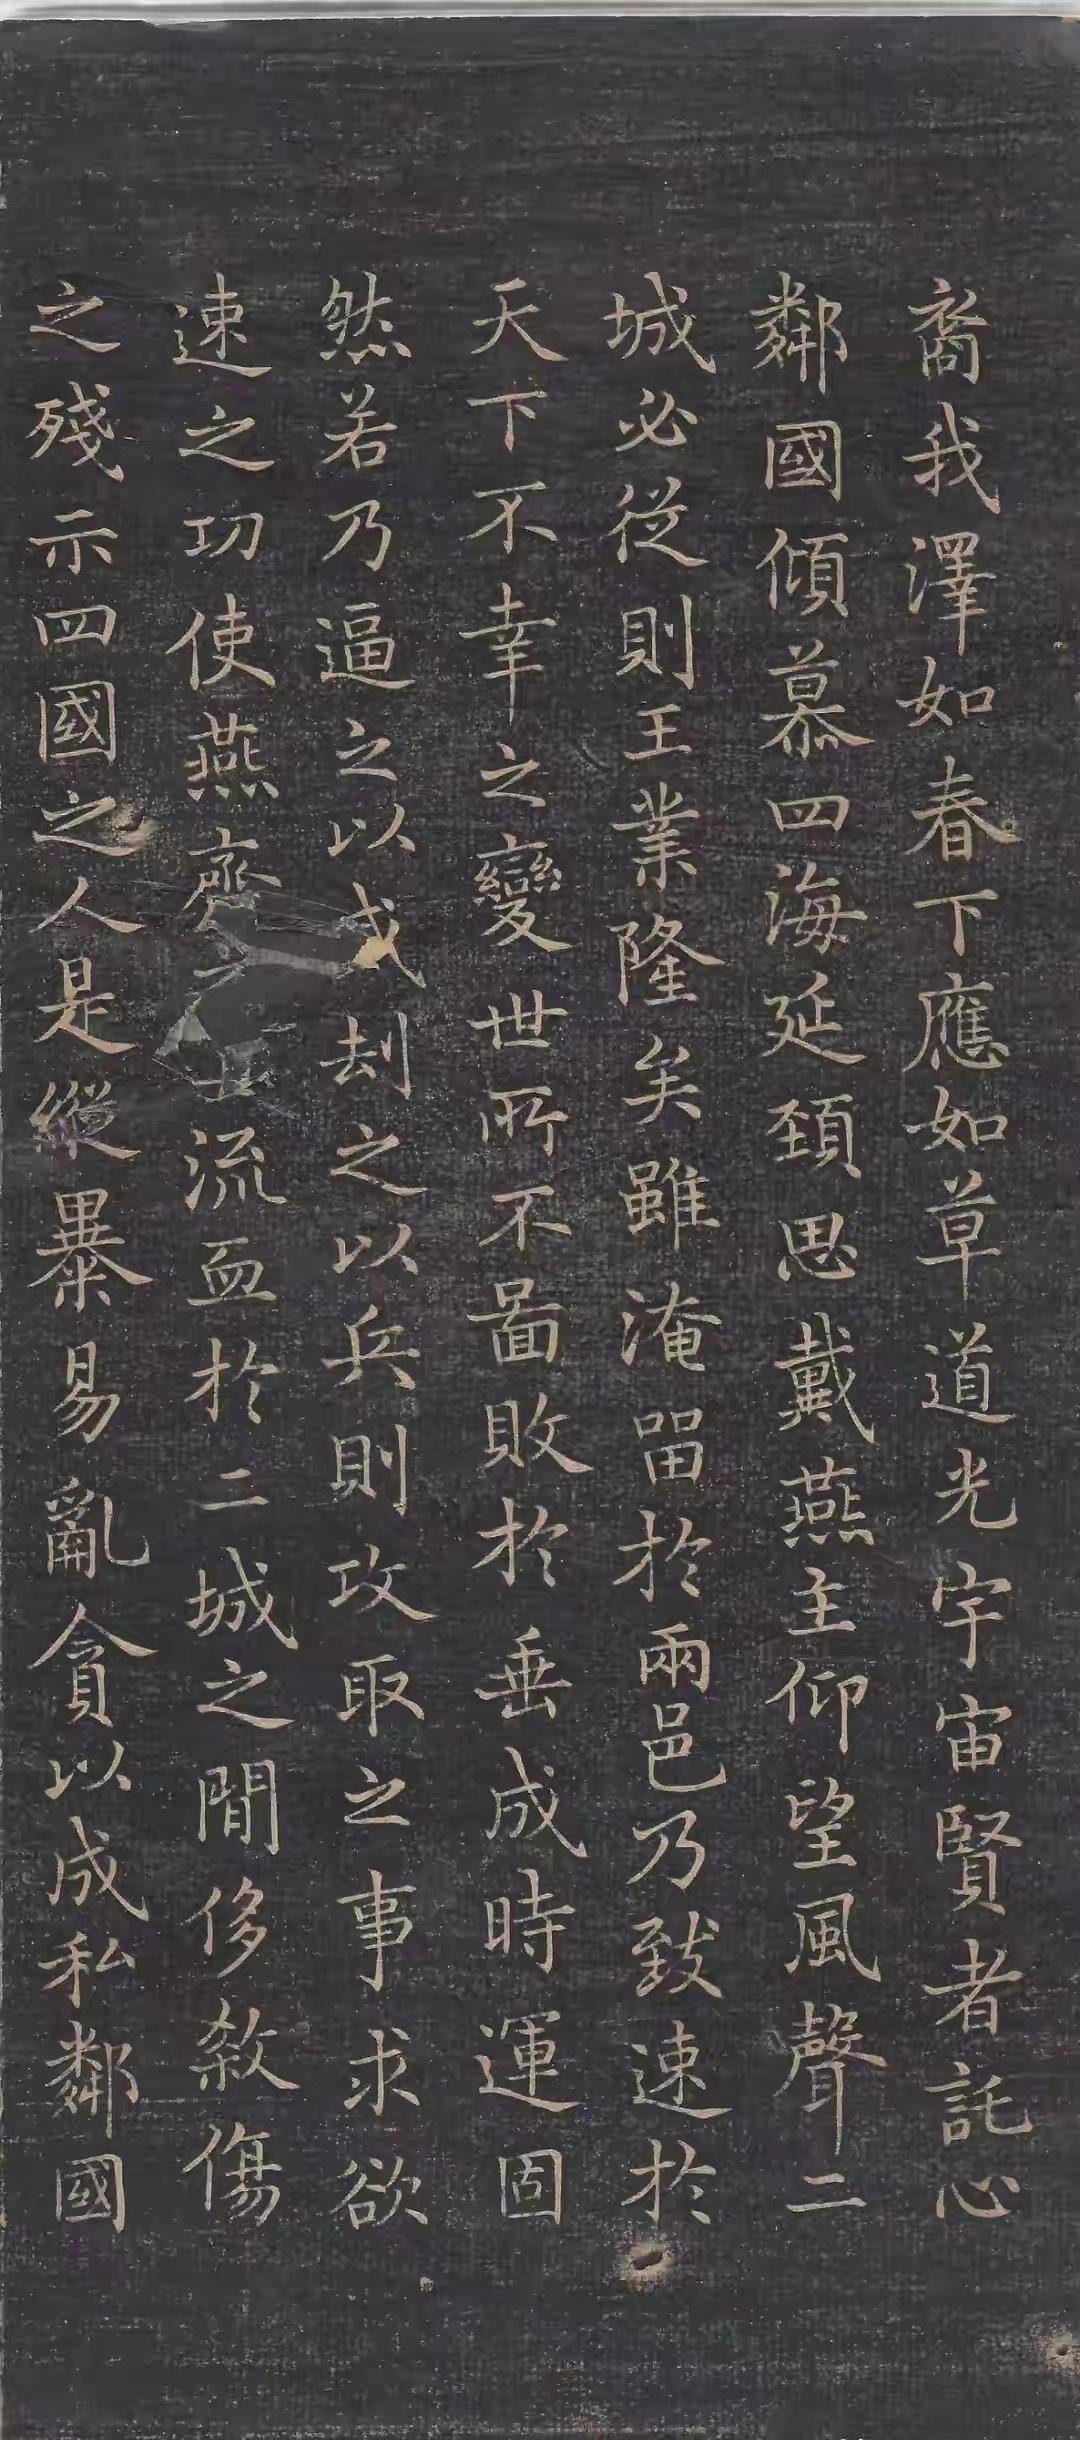 裔我澤如春下應如草道光宇宙賢者託心
鄰國傾慕四海延頸思戴燕主仰望風聲二
城必從則王業隆矣雖淹留於兩邑乃致速於
天下不幸之變世所不啚敗於垂成時運固
然若乃逼之以劫之以兵則攻取之事求欲
速之功使燕齊之士流血於二城之閒侈殺傷
之殘示四國之人是縱暴易亂貪以成私鄰國